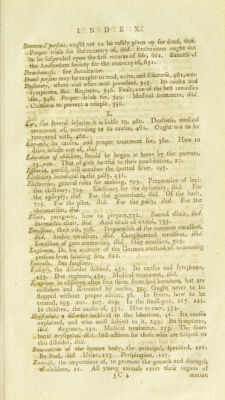 I N D E X.
Drowned persons, ought not to be rashly given up for dead, 620.
Proper trials for the recovery of, ibid. Endeavours ought not
to be suspended upon the first returns of life, 624. Success of
the Amsterdam Society for the recovery of, 631.
Drunkenness. See Intoxication.
Dumb persons may be taught to read, write, and discourse, 461, note.
Dysentery, where and when most prevalent, 345. Its causes and
symptoms, ibid. Regimen, 346. Fruit, one of the best remedies
for, 348. Proper drink for, 349. Medical treatment, ibid.
Cautions to prevent a relapse, 350.
E.
Ear, the several injuries it is liable to, 460. Deafness, medical
treatment of, according to its causes, 461. Ought not to be
tampered with, 462.
its causes, and proper treatment for, 360. How to
drive insects out of, ibid.
Education of children, should be begun at home by the parents,
25, note. That of girls hurtful to their constitutions, 27.
Effluvia, putrid, will occasion the spotted fever, 195.
Electricity beneficial in the palsy, 431.
Electuaries, general rules for making, 703. Preparation of lenitive
electuary, 704. Electuary for the dysentery, ibid. For
the epilepsy, ibid. For the gonorrhœa, ibid. Of the bark,
705. For the piles, ibid. For the palsy, ibid. For the
rheumatism, ibid.
Elixir, paregoric, how to prepare, 732. Sacred elixir, ibid.
Stomachic elixir, ibid. Acid elixir of vitriol, 733.
Emulsions, their use, 706. Preparation of the common emulsion,
ibid. Arabic emulsion, ibid. Camphorated emulsion, ibid.
Emulsion of gum ammoniac, ibid. Oily emulsion, 707.
Dr. his account of the German method of recovering
persons from fainting fits, 692.
Entrails. See Intestines.
Epilepsy, the disorder defined, 432. Its causes and symptoms,
433. Due regimen, 434. Medical treatment, ibid.
Eruptions, in children often free them from bad humours, but are
mistaken and ill-treated by nurses, 35. Ought never to be
stopped without proper advice, 36. In fevers, how to be
treated, 193. 201. 207. 209. In the small-pox, 217. 221.
In children, the causes of, 551. How to cure, 554.
Erysipelas, a disorder incident to the laborious, 41. Its causes
explained, and who most subject to it, 249. Its symptoms,
ibid. Regimen, 250. Medical treatment, 255. The scorbutic
erysipelas, ibid. Instructions for those who are subject to
this disorder, ibid.
Evacuations of the human body, the principal, specified, 121.
By stool, ibid. Urine, 123. Perspiration, 125.
Exercise, the importance of, to promote the growth and strength
of children, 21. All young animals exert their organs of
3 C 4
motion